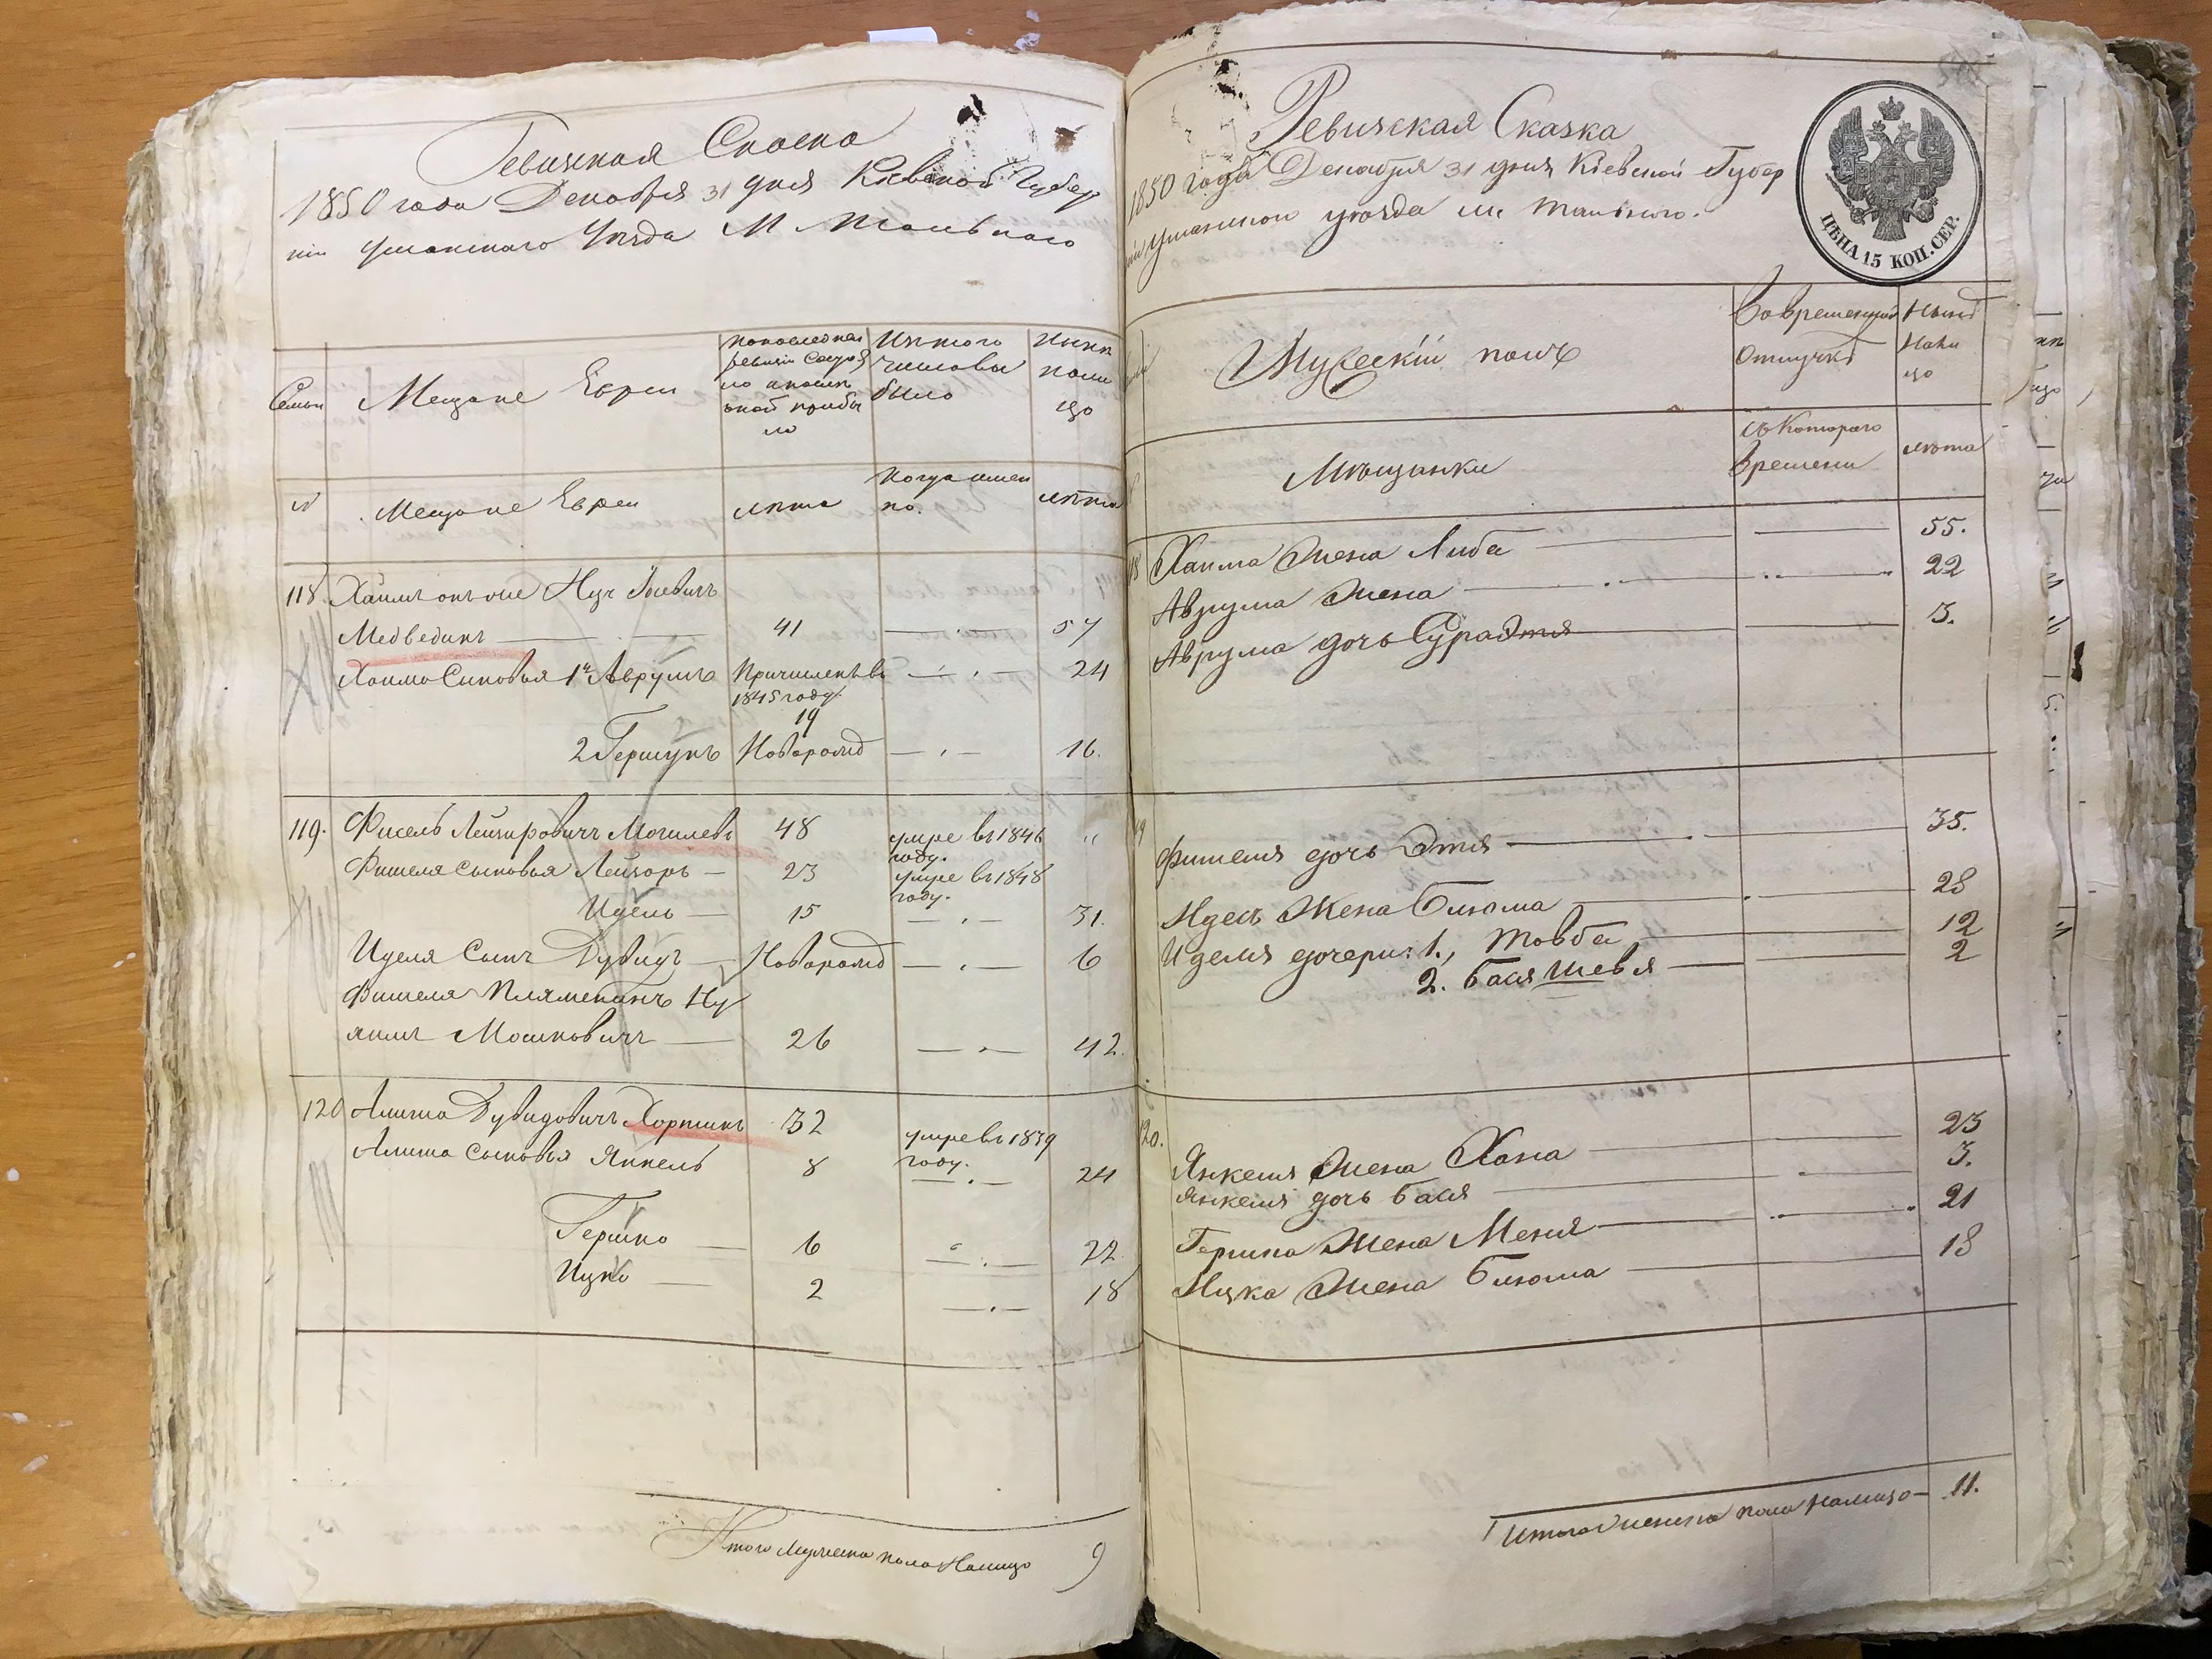 Ревизкая Скаска
1850 года Декабря 31 дня Киевской Губер
нiи Уманскаго Уезда М Тальнаго
Семьи
Мещане Евреи
По последней
ревизии состоя
ло и после
оной прибы
ло
Из того
числа вы
было
Ныне
нали
цо
№
Мещане Евреи
лета
Когда имен
но.
лета
118. Хаимъ онъ же Нух Iосевичъ
Медведикъ — 41 — · — 57
Хаима Сыновья 1й Аврумъ Причисленъ въ — · — 24
1845 году.
19
2 Гершунъ Новорожд — · — 16.
119. Фисель Лейзировичъ Могилевъ 48 умре въ 1846 "
году.
Фишеля сыновья Лейзоръ — 23 умре въ 1848
году.
Идель — 15 — · — 31.
Иделя Сынъ Дувидъ — Новорожд — · — 6
Фишеля Пляменикъ Ну
химъ Мошковичъ — 26 — · — 42.
120 Алиша Дувидовичъ Хорошикъ 32 умре въ 1839
году.
Алиша сыновья Янкель 8 — · — 24
Гершко — 6 — · — 22.
Ицко — 2 — · — 18
Итого Мужеска пола Налицо 9
Ревизская Сказка
1850 года Декабря 31 дня Кiевской Губер
нiи Уманскаго уезда м. Тальнаго.
ЦѢНА 15 КОП. СЕР.
Мужескiй полъ
Во временной
отлучкѣ
Нынѣ
нали
цо
Мѣщанки
съ Котораго
времени
лѣта
18 Хаима Жена Либа — 55.
Аврума Жена — 22
Аврума дочь Сура Этя — 3.
19 Фишеля дочь Этя — 35.
Идель Жена Блюма — 28
Иделя дочери: 1., Товба — 12
2. Бася Шевя — 2
20. Янкеля Жена Хана — 23
Янкеля дочь Бася — 3.
Гершка Жена Меня — 21
Ицка Жена Блюма — 18
Итого Женска пола Налицо — 11.